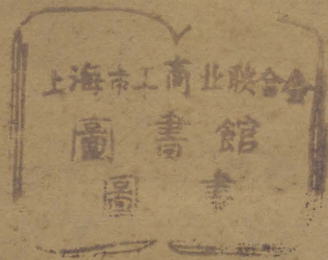 上海市工商业联合会
圖書館
圖書